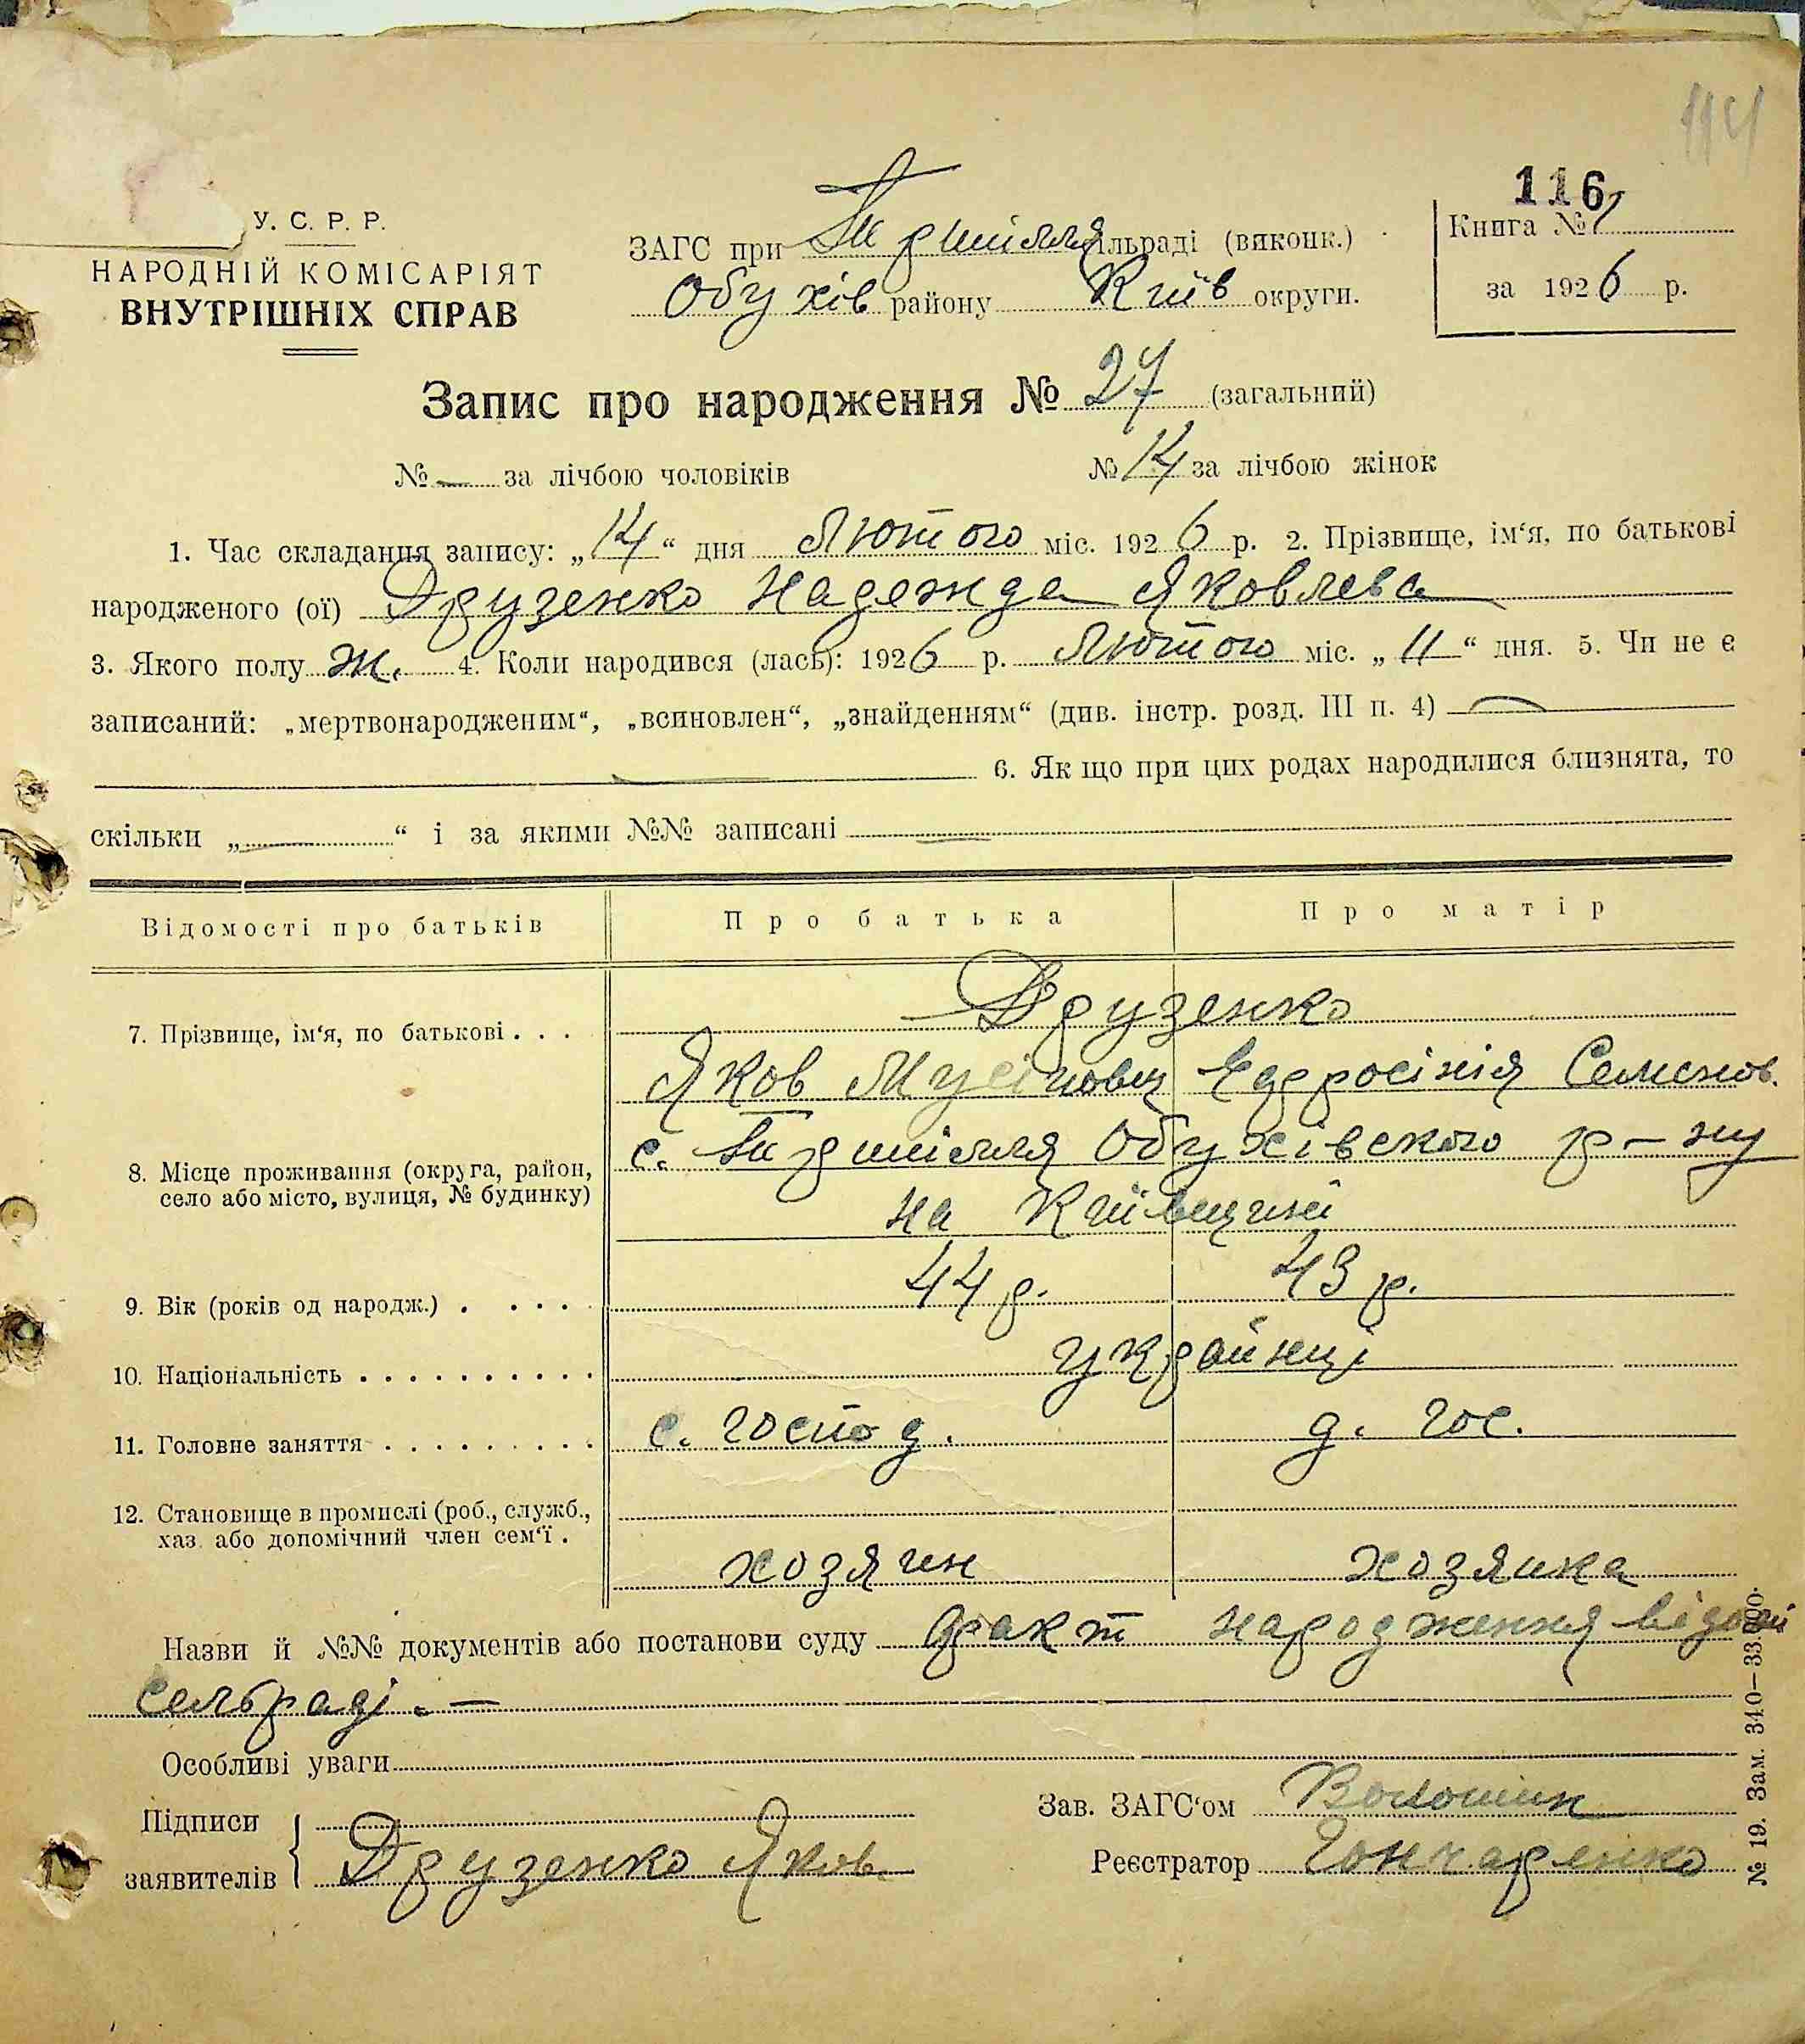 114
116
У. С. Р. Р.
НАРОДНІЙ КОМІСАРІЯТ
ВНУТРІШНІХ СПРАВ
ЗАГС при Трипілля сільраді (виконк.)
Обухів району Київ округи.
Книга №
за 1926 р.
Запис про народження № 27 (загальний)
№ — за лічбою чоловіків № 14 за лічбою жінок
1. Час складання запису: „14“ дня Лютого міс. 1926 р. 2. Прізвище, ім‘я, по батькові
народженого (ої) Друзенко Надежда Яковлева
3. Якого полу ж. 4. Коли народився (лась): 1926 р. Лютого міс. „11“ дня. 5. Чи не є
записаний: „мертвонародженим“, „всиновлен“, „знайденням“ (див. інстр. розд. III п. 4) —
— 6. Як що при цих родах народилися близнята, то
скільки „—“ і за якими №№ записані —
Відомості про батьків Про батька Про матір
Друзенко
7. Прізвище, ім‘я, по батькові . . .
Яков Мусійович Єфросінія Семенов.
с. Трипілля Обухівского р-ну
8. Місце проживання (округа, район,
село або місто, вулиця, № будинку)
на Київщині
9. Вік (років од народж.) . . . . . 44 р. 43 р.
10. Національність . . . . . . . . . . українці
11. Головне заняття . . . . . . . . . с. господ. д. гос.
12. Становище в промислі (роб., служб.,
хаз. або допомічний член сем‘ї .
хозяин хозяика
Назви й №№ документів або постанови суду факт народження відомий
сельраді. —
Особливі уваги
Підписи
заявителів { Друзенко Яков.
Зав. ЗАГС‘ом Волошин
Реєстратор Гончаренко
№ 19. Зам. 340—33.000.